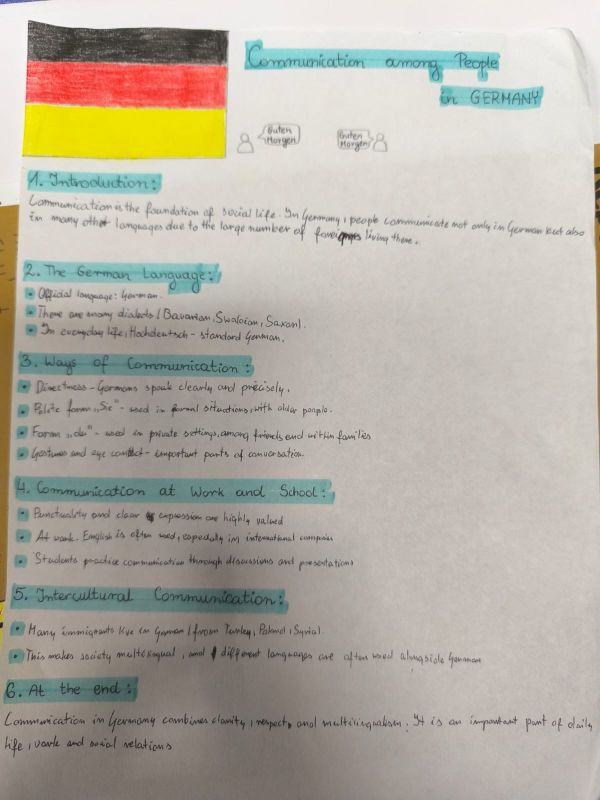 Communication among People
in GERMANY
Guten
Morgen
Guten
Morgen
1. Introduction:
Communication is the foundation of social life. In Germany, people communicate not only in German but also
in many other languages due to the large number of living there.
2. The German Language:
• Official language: German.
• There are many dialects (Bavarian, Swabian, Saxon).
• In everyday life, Hochdeutsch - standard German.
3. Ways of Communication:
• Directness - Germans speak clearly and precisely.
• Polite form „Sie" - used in formal situations, with older people.
• Form „du" - used in private settings, among friends and within families
• Gestures and eye contact - important parts of conversation.
4. Communication at Work and School:
• Punctuality and clear expression are highly valued
• At work. English is often used, especially in international companies
• Students practice communication through discussions and presentations
5. Intercultural Communication:
• Many immigrants live in German (from Turkey, Poland, Syria).
• This makes society multilingual, and different languages are often used alongside German
6. At the end:
Communication in Germany combines clarity, respect, and multilingualism. It is an important part of daily
life, work and social relations